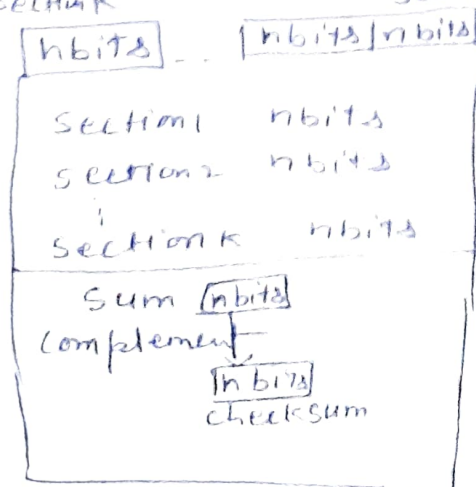 nbits .. nbits nbits
section1 nbits
section2 nbits
section k nbits
sum nbits
complement
n bits
checksum